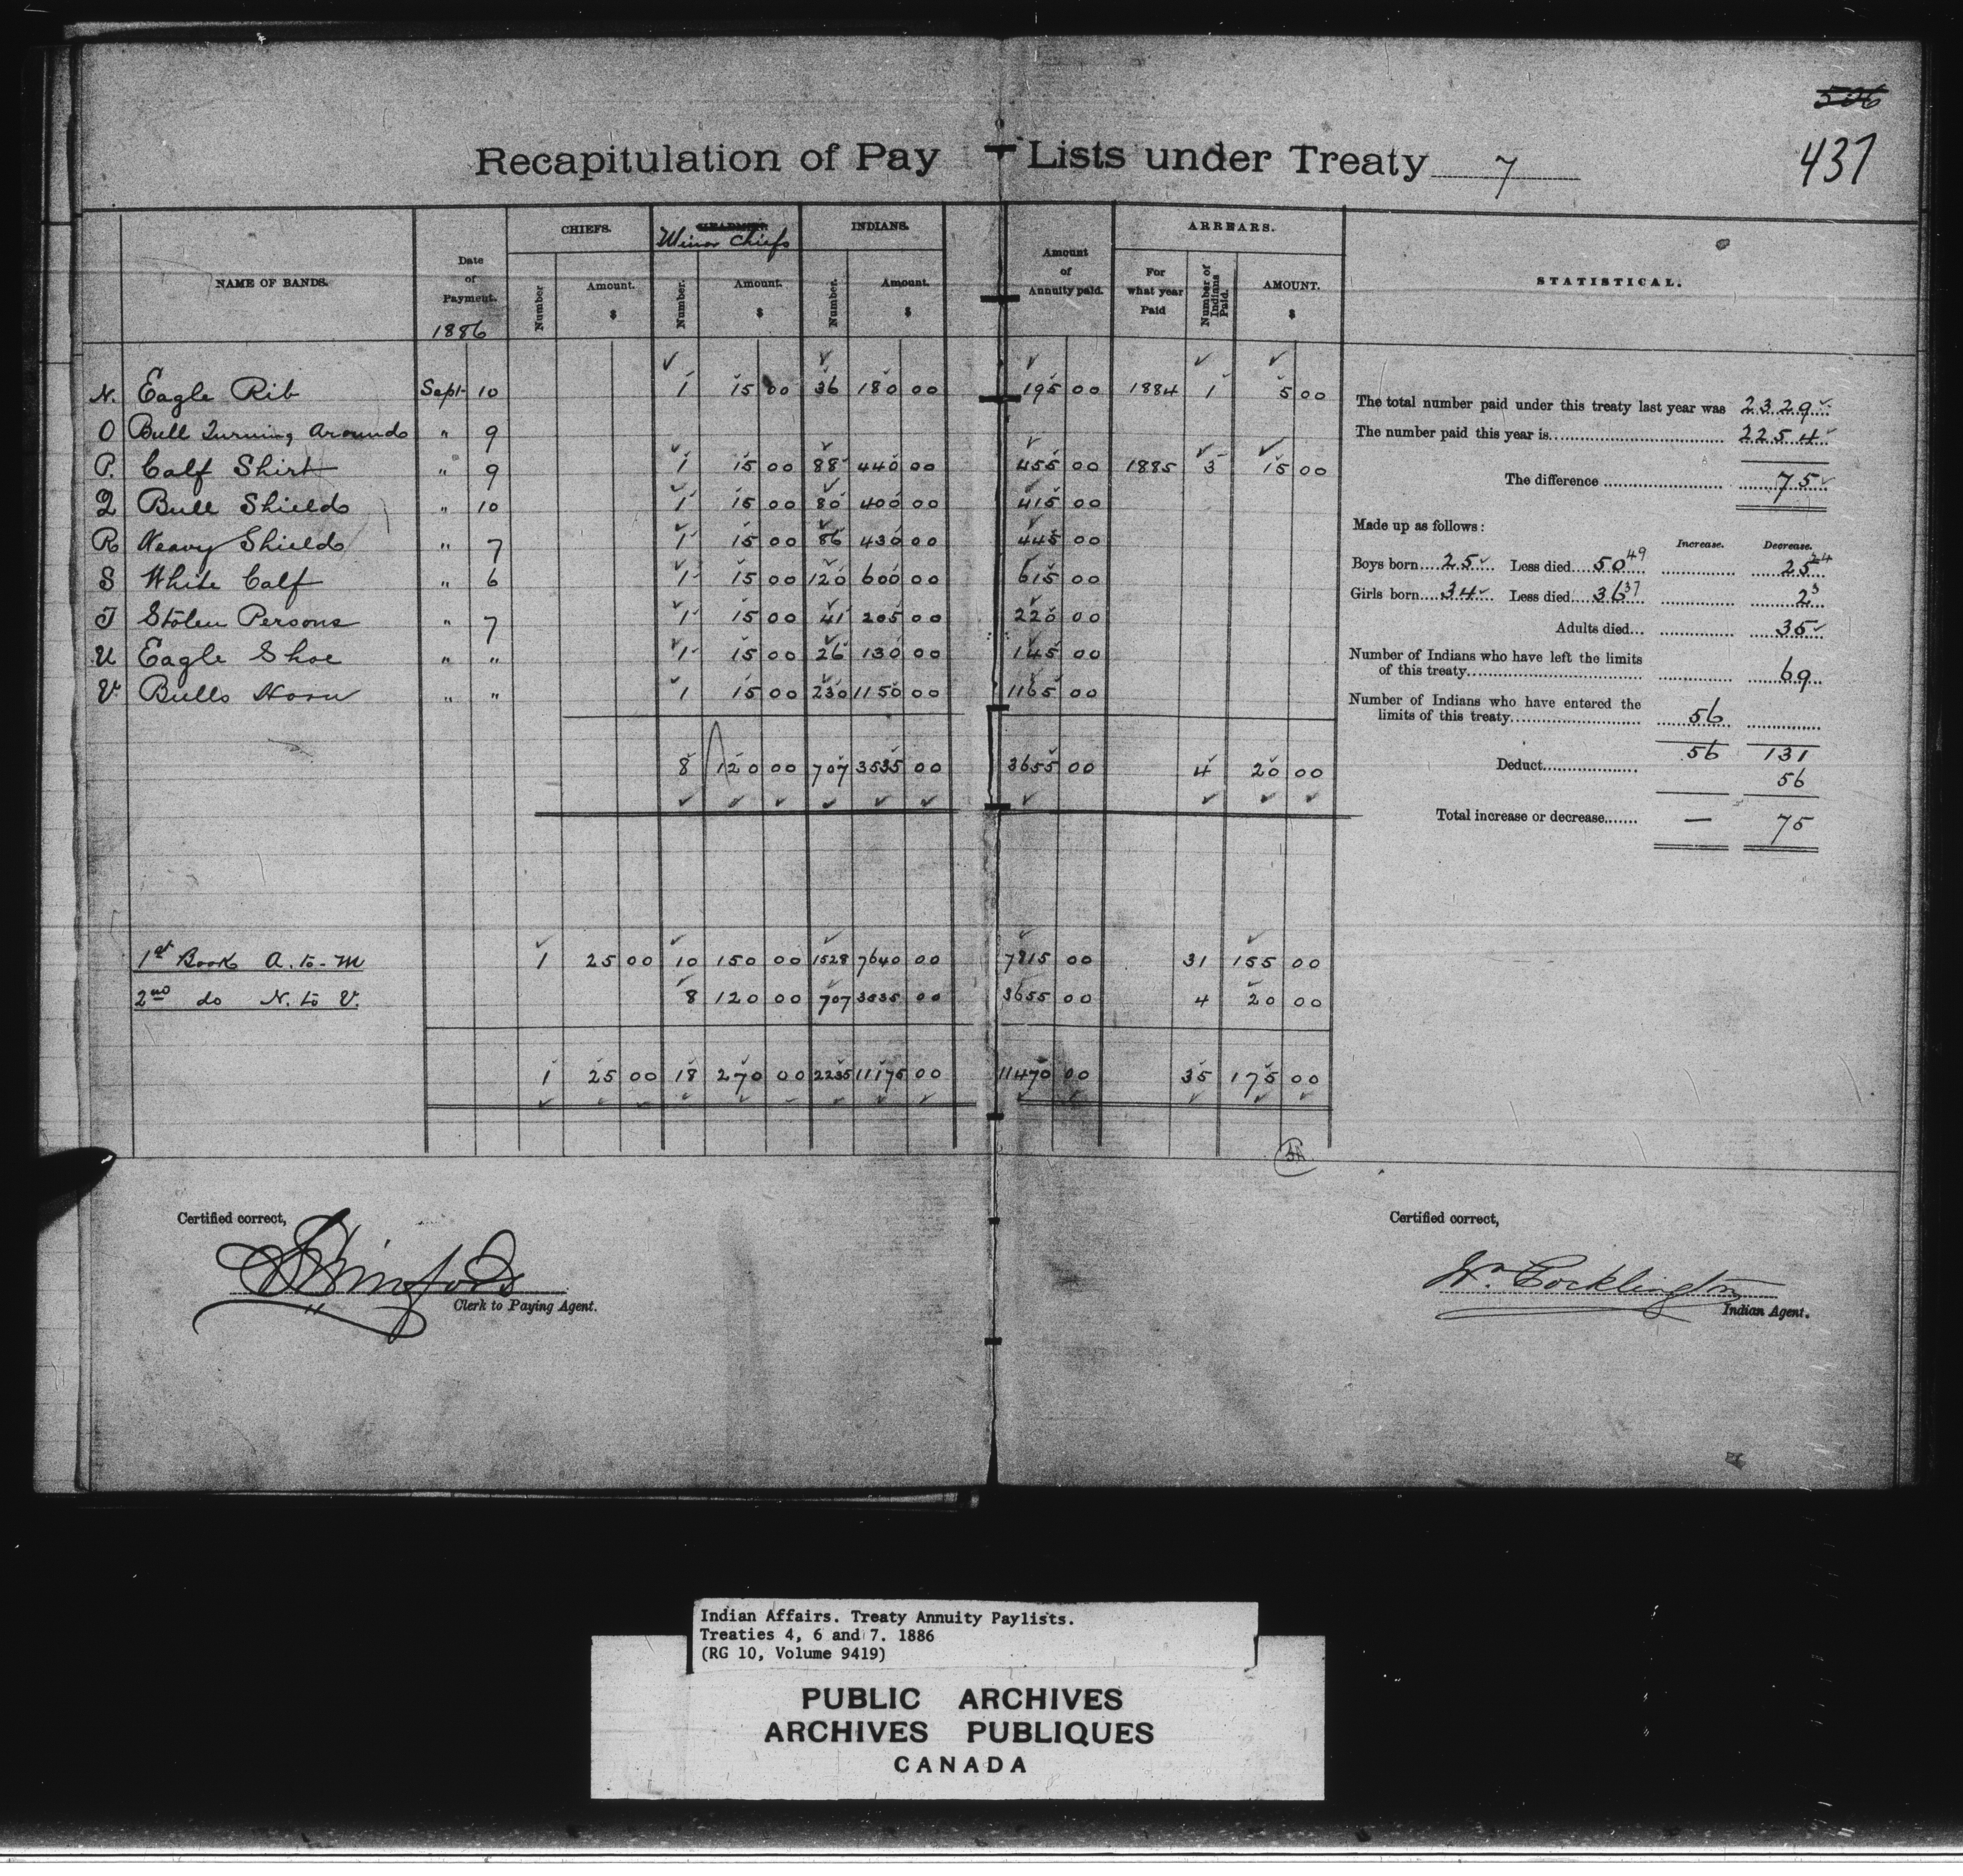 506
437
Recapitulation of Pay Lists under Treaty 7
NAME OF BANDS. Date of Payment. 1886 CHIEFS. Number Amount. $ HEADMEN. Minor Chiefs Number. Amount. $ INDIANS. Number. Amount. $ Amount of Annuity paid. ARREARS. For what year Paid Number of Indians Paid. AMOUNT. $ STATISTICAL.
N. Eagle Rib Sept 10 1 15 00 36 180 00 195 00 1884 1 5 00
O Bull Turning Arounds " 9
P. Calf Shirt " 9 1 15 00 88 440 00 455 00 1885 3 15 00
Q Bull Shields " 10 1 15 00 80 400 00 415 00
R Heavy Shields " 7 1 15 00 86 430 00 445 00
S White Calf " 6 1 15 00 120 600 00 615 00
T Stolen Persons " 7 1 15 00 41 205 00 220 00
U Eagle Shoe " " 1 15 00 26 130 00 145 00
V. Bulls Horn " " 1 15 00 230 1150 00 1165 00
8 120 00 707 3535 00 3655 00 4 20 00
1st Book A. to M 1 25 00 10 150 00 1528 7640 00 7815 00 31 155 00
2nd do N. to V. 8 120 00 707 3535 00 3655 00 4 20 00
1 25 00 18 270 00 2235 11175 00 11470 00 35 175 00
The total number paid under this treaty last year was 2329
The number paid this year is 2254
The difference 75
Made up as follows:
Increase. Decrease.
Boys born 25 Less died 50 49 25 24
Girls born 34 Less died 36 37 2 3
Adults died... 35
Number of Indians who have left the limits
of this treaty 69
Number of Indians who have entered the
limits of this treaty 56
56 131
Deduct 56
Total increase or decrease — 75
Certified correct,
Clerk to Paying Agent.
Certified correct,
Wm. Pocklington
Indian Agent.
Indian Affairs. Treaty Annuity Paylists.
Treaties 4, 6 and 7. 1886
(RG 10, Volume 9419)
PUBLIC ARCHIVES
ARCHIVES PUBLIQUES
CANADA